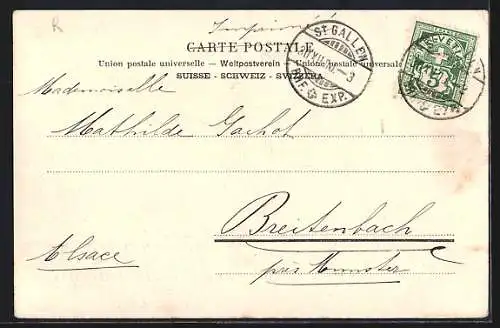 R
Imprimé
CARTE POSTALE
Union postale universelle — Weltpostverein — Unione postale universale
SUISSE - SCHWEIZ - SVIZZERA
ST GALLEN
BRF. EXP.
HELVETIA
5
Mademoiselle
Mathilde Gachot
Breitenbach
Alsace
près Munster